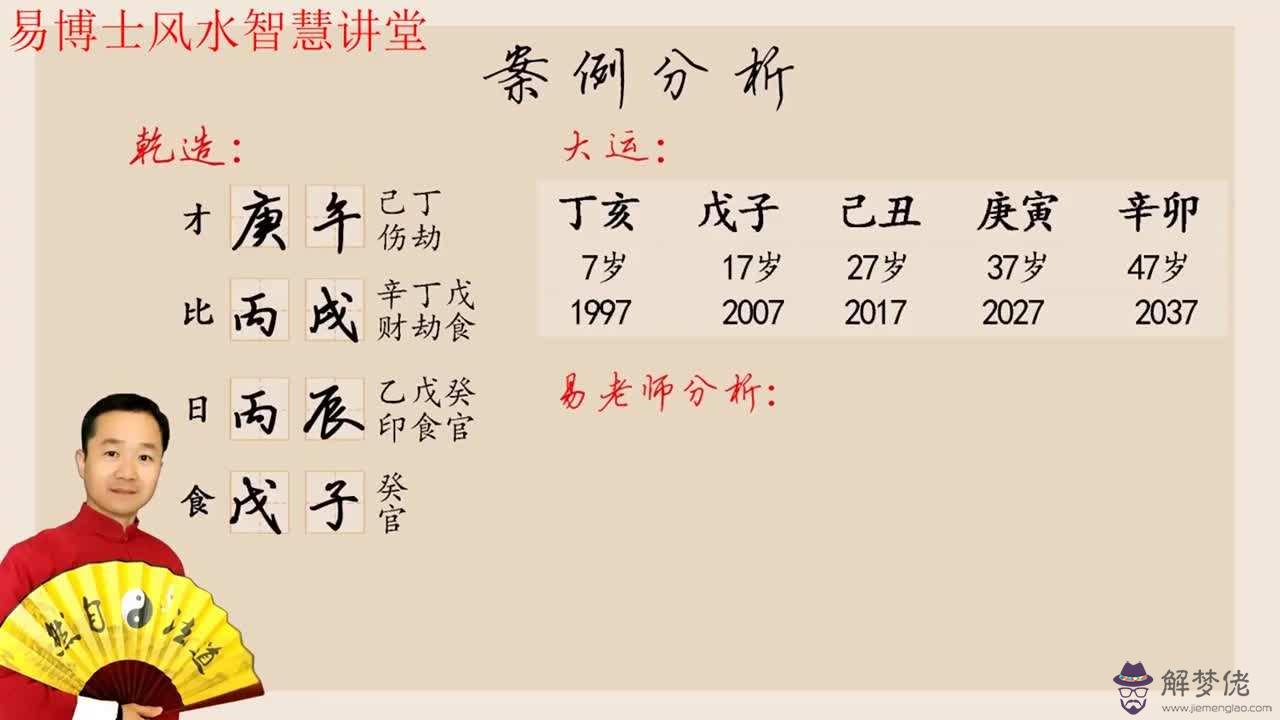 易博士风水智慧讲堂
案例分析
乾造：
才 庚 午 己丁
伤劫
比 丙 戌 辛丁戊
财劫食
日 丙 辰 乙戊癸
印食官
食 戊 子 癸
官
大运：
丁亥 戊子 己丑 庚寅 辛卯
7岁 17岁 27岁 37岁 47岁
1997 2007 2017 2027 2037
易老师分析：
道法自然
解梦佬
www.jiemenglao.com